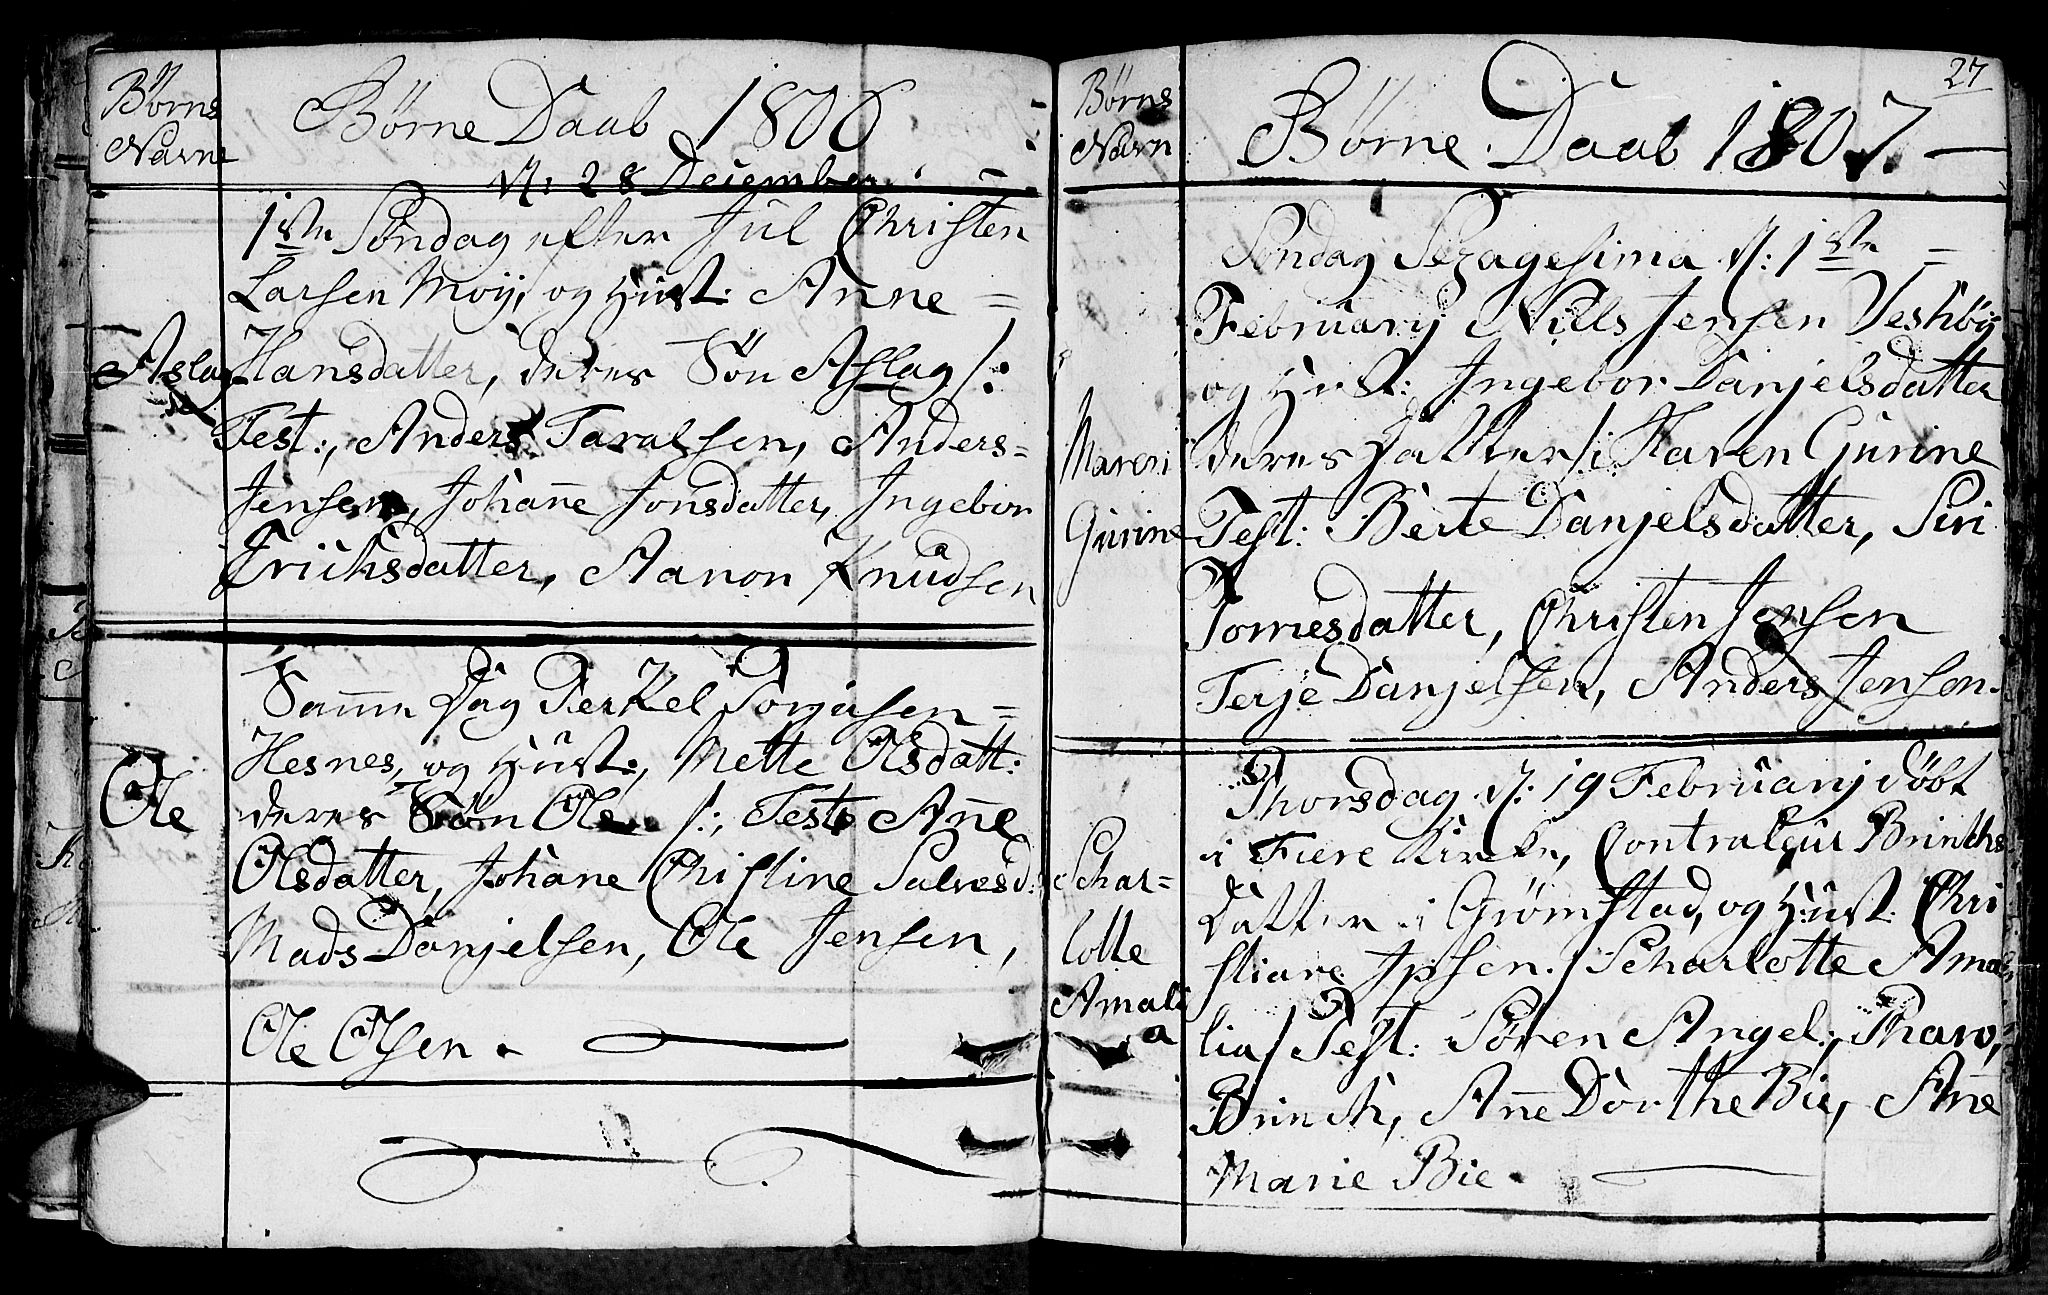 Børns
Navne
Børne Daab 1806
d: 28 Decembr.
1ste Søndag efter Jul Christen
Larsen Moy, og Hust: Anne =
Aslag
Hansdatter, deres Søn Aslag /:
Test:, Anders Taralsen, Anders =
Jensen, Johañe Jonsdatter, Ingebor
Erichsdatter, Aanon Knudsen
Sam̃e Dag Terkel Torjusen =
Hesnes, og Hust:, Mette Olsdatt:
Ole
deres Søn Ole /:, Test: Añe
Olsdatter, Johane Christine Salvesd:
Mads Danjelsen, Ole Jensen,
Ole Olsen.
27
Børns
Navn
Børne Daab 1807. —
Søndag Sexagesima d: 1ste =
February Niels Jensen Vestbøy
og Hust: Ingebor Danjelsdatter
Maren
deres Datter /: Maren Gurine
Gurine
Test: Berte Danjelsdatter, Siri
Tomesdatter, Christen Jensen
Terje Danjelsen, Anders Jensen.
Thorsdag d: 19 February døbt
i Fiere Kirke, Contraleur Brinchs
Schar=
Datter i Grømstad, og Hust: Chri
lotte
stiane Ipsen. / Scharlotte Ama
Amali
a
lia / Test: Søren Angel:, Tharo,
Brinch, Añe Dorthe Bie, Añe
Marie Bie.